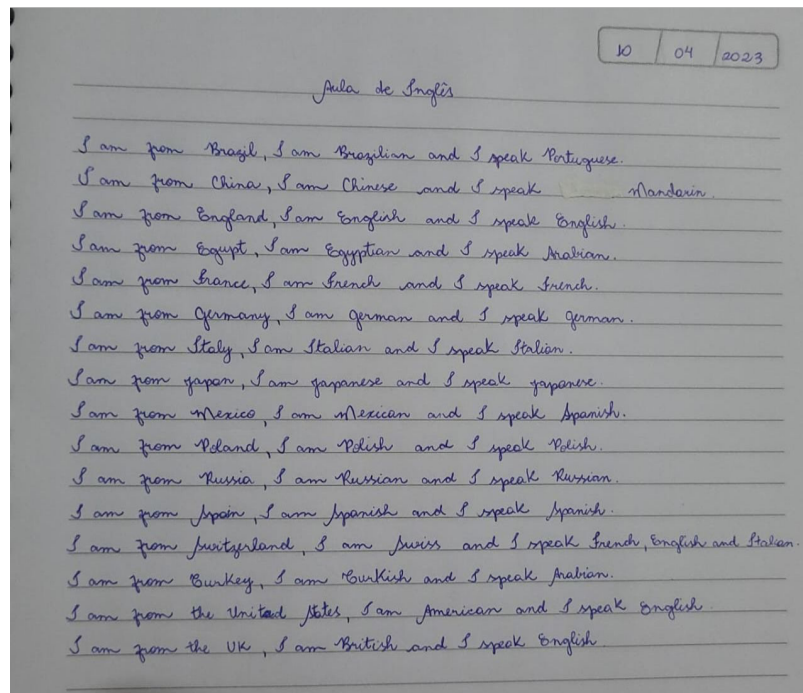 10 / 04 / 2023
Aula de Inglês
I am from Brazil, I am Brazilian and I speak Portuguese.
I am from China, I am Chinese and I speak Mandarin.
I am from England, I am English and I speak English.
I am from Egypt, I am Egyptian and I speak Arabian.
I am from France, I am French and I speak French.
I am from Germany, I am German and I speak German.
I am from Italy, I am Italian and I speak Italian.
I am from Japan, I am Japanese and I speak Japanese.
I am from Mexico, I am Mexican and I speak Spanish.
I am from Poland, I am Polish and I speak Polish.
I am from Russia, I am Russian and I speak Russian.
I am from Spain, I am Spanish and I speak Spanish.
I am from Switzerland, I am Swiss and I speak French, English and Italian.
I am from Turkey, I am Turkish and I speak Arabian.
I am from the United States, I am American and I speak English.
I am from the UK, I am British and I speak English.